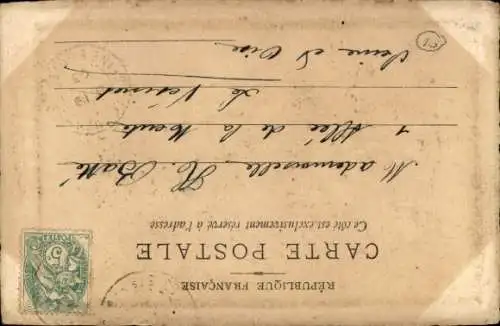 RÉPUBLIQUE FRANÇAISE
CARTE POSTALE
Ce côté est exclusivement réservé à l'adresse
Mademoiselle H. Ballé
1 Allée de la Meute
Le Vésinet
Seine et Oise